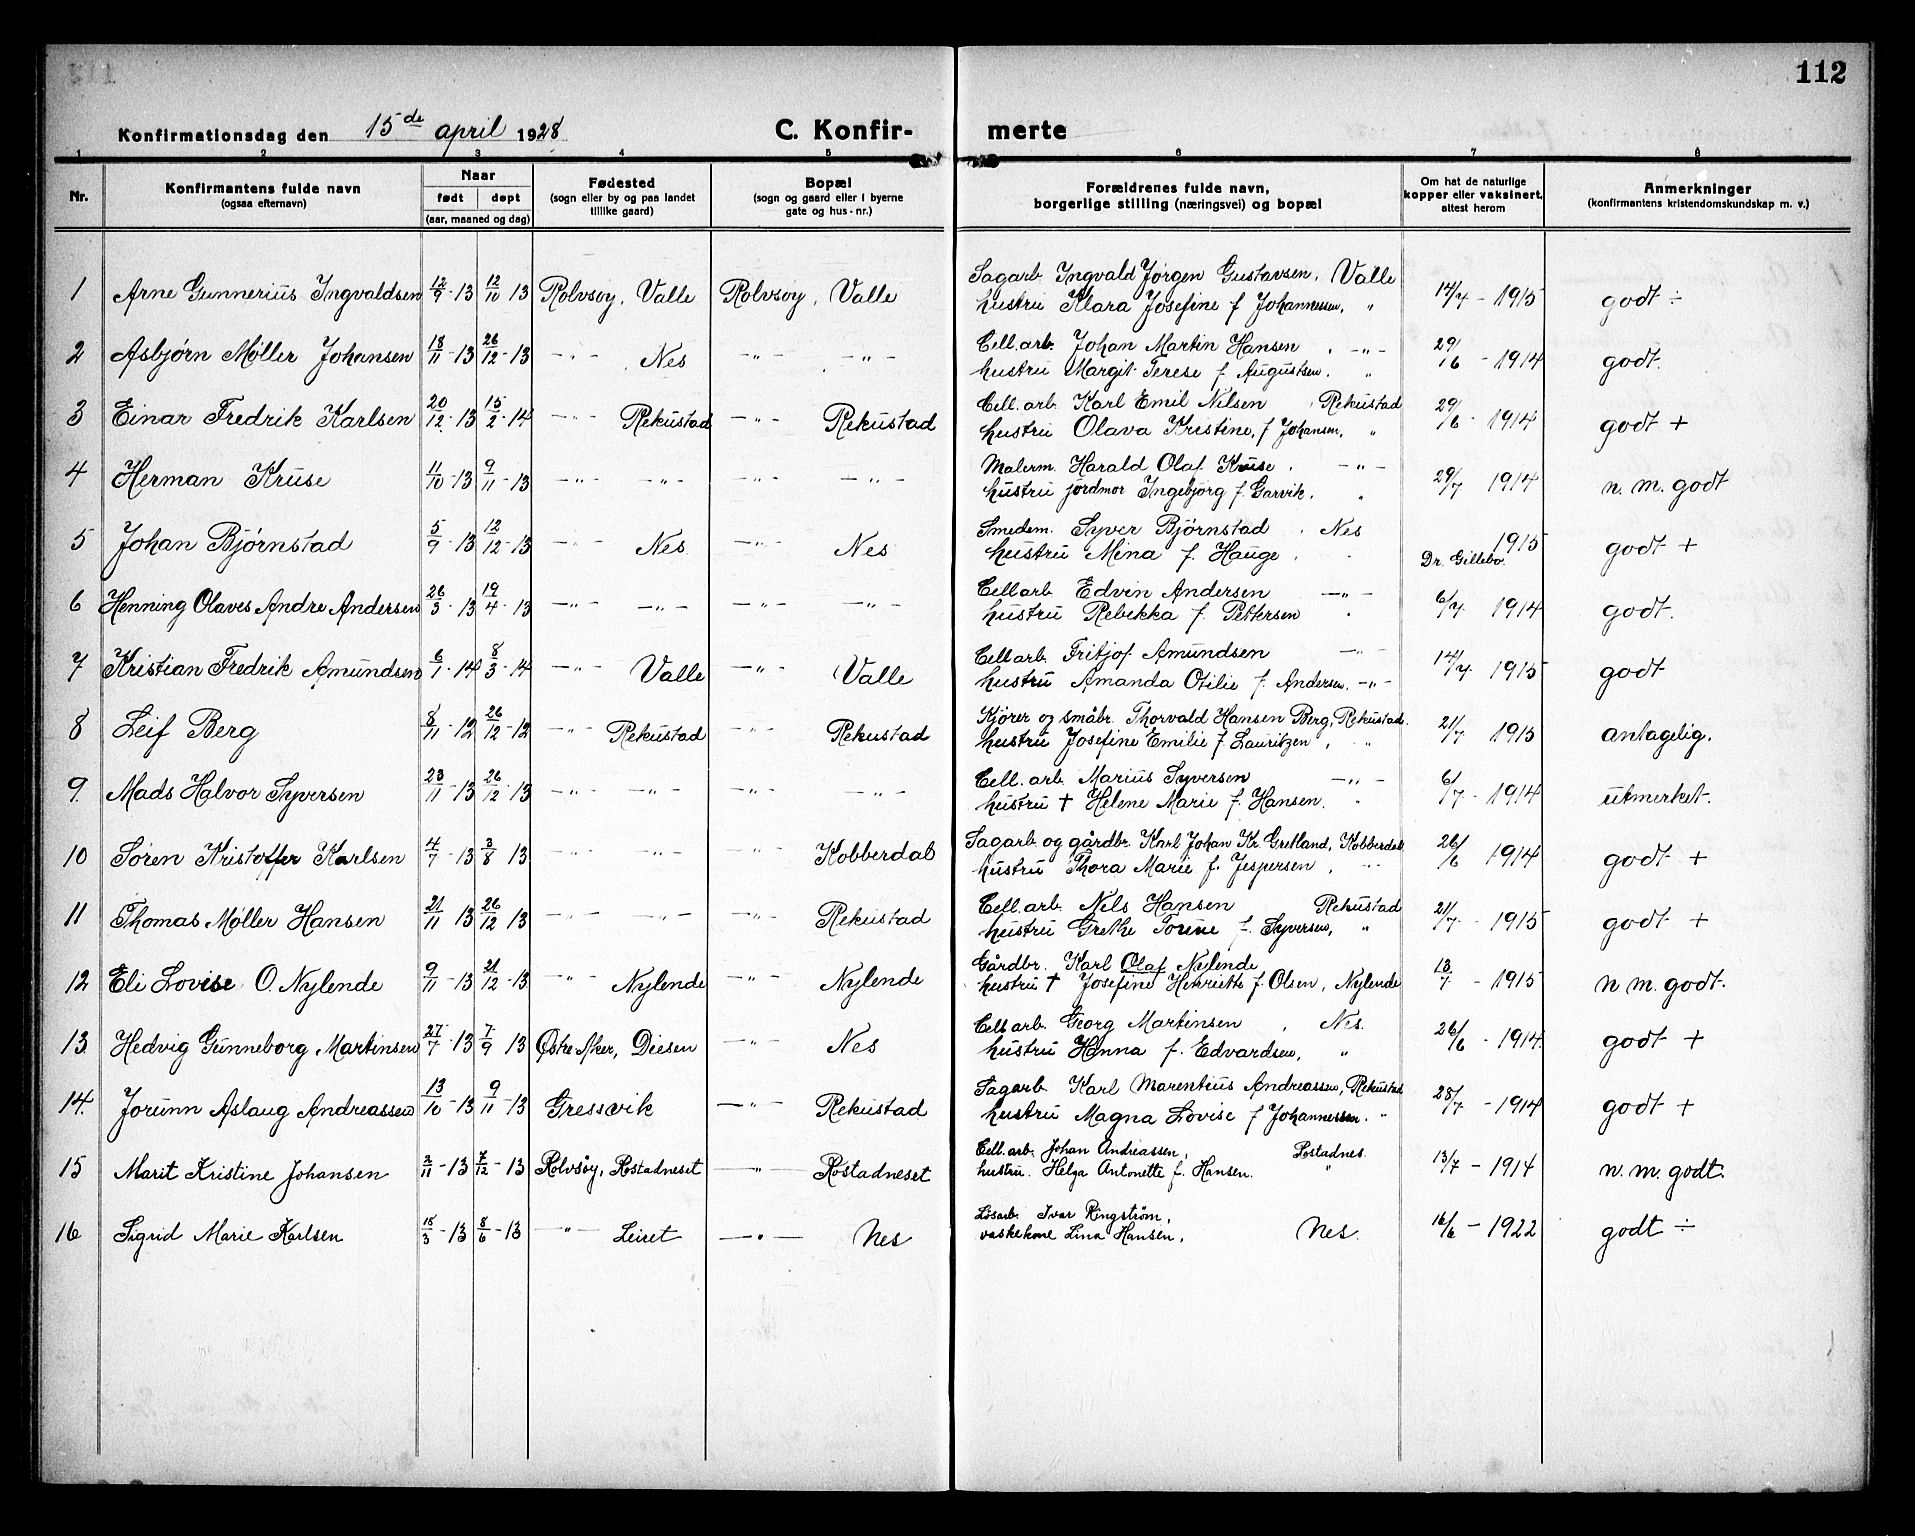 112
Konfirmationsdag den 15de april 1928 C. Konfir- merte
1 2 3 4 5 6 7 8
Nr. Konfirmantens fulde navn (ogsaa efternavn) Naar født døpt (aar, maaned og dag) Fødested (sogn eller by og paa landet tillike gaard) Bopæl (sogn og gaard eller i byerne gate og hus-nr.) Forældrenes fulde navn, borgerlige stilling (næringsvei) og bopæl Om hat de naturlige kopper eller vaksinert, attest herom Anmerkninger (konfirmantens kristendomskundskap m. v.)
1 Arne Gunnerius Ingvaldsen 12/9 - 13 12/10 13 Rolvsøy, Valle Rolvsøy, Valle Sagarb. Ingvald Jørgen Gustavsen, Valle 14/7 - 1915 godt ÷
hustru Klara Josefine f Johannessen, "
2 Asbjørn Møller Johansen 18/11 - 13 26/12 - 13 -"- Nes -"- -"- Cell.arb. Johan Martin Hansen, -"- 29/6 - 1914 godt.
hustru Margit Terese f. Augustsen. "
3 Einar Fredrik Karlsen 20/12 - 13 15/2 - 14 -"- Rekustad -"- Rekustad Cell.arb. Karl Emil Nilsen, Rekustad 29/6 - 1914 godt +
hustru Olava Kristine, f Johansen, "
4 Herman Kruse 11/10 - 13 9/11 - 13 -"- -"- -"- -"- Malerm. Harald Olaf Kruse. -"- 29/7 1914 n. m. godt
hustru jordmor Ingebjørg f. Garvik. "
5 Johan Bjørnstad 5/9 - 13 12/12 - 13 -"- Nes -"- Nes Smedem. Syver Bjørnstad. Nes 1915 godt +
hustru Mina f. Hauge. Dr. Gillebo.
6 Henning Olaves Andre Andersen 26/3 - 13 19/4 - 13 -"- -"- -"- -"- Cellarb Edvin Andersen -"- 6/7 1914 godt.
hustru Rebekka f. Pettersen
7 Kristian Fredrik Amundsen 6/1 - 14 8/3 - 14 -"- Valle -"- Valle Cellarb. Fritjof Amundsen -"- 14/7 1915 godt
hustru Amanda Otilie f. Andersen. -"-
8 Leif Berg 8/11 - 12 26/12 - 12 -"- Rekustad -"- Rekustad Kjører og småbr. Thorvald Hansen Berg, Rekustad. 21/7 1915 antagelig.
hustru Josefine Emilie f Lauritzen, "
9. Mads Halvor Syversen 23/11 - 13 26/12 - 13 -"- -"- -"- -"- Cell. arb. Marius Syversen -"- 6/7 - 1914 utmerket.
hustru † Helene Marie f. Hansen. "
10 Søren Kristoffer Karlsen 4/7 - 13 3/8 13 -"- -"- -"- Kobberdal Sagarb og gårdbr. Karl Johan Kr. Gretland, Kobberdal 26/6 1914 godt +
hustru Thora Marie f. Jespersen, "
11 Thomas Møller Hansen 21/11 13 26/12 13 -"- -"- -"- Rekustad Cell.arb. Nils Hansen Rekustad 21/7 - 1915 godt +
hustru Grethe f. Syversen, "
12 Eli Lovise O. Nylende 9/11 - 13 21/12 - 13 -"- Nylende -"- Nylende Gårdbr. Karl Olaf Nylende 13/7 - 1915 n m. godt.
hustru † Josefine Henriette f. Olsen, Nylende
13. Hedvig Gunneborg Martinsen 27/7 - 13 7/9 13 Østre Aker, Diesen -"- Nes Cellarb. Georg Martinsen, Nes. 26/6 - 1914. godt +
hustru Hanna f. Edvardsen, "
14. Jorunn Aslaug Andreassen 13/10 - 13 9/11 - 13 Gressvik -"- Rekustad Sagarb. Karl Marentius Andreassen, Rekustad 28/7 - 1914 godt +
hustru Magna Lovise f Johannessen. "
15 Marit Kristine Johansen 2/11 - 13 7/12 - 13 Rolvsøy, Rostadneset -"- Rostadneset Cell.arb. Johan Andreassen, Rostadnes. 13/7 - 1914 n. m. godt.
hustru. Helga Antonette f. Hansen. "
16 Sigrid Marie Karlsen 18/3 - 13 8/6 - 13 -"- Leiret -"- Nes Løsarb. Ivar Ringstrøm, 16/6 - 1922 godt ÷
vaskekone Lina Hansen, Nes.